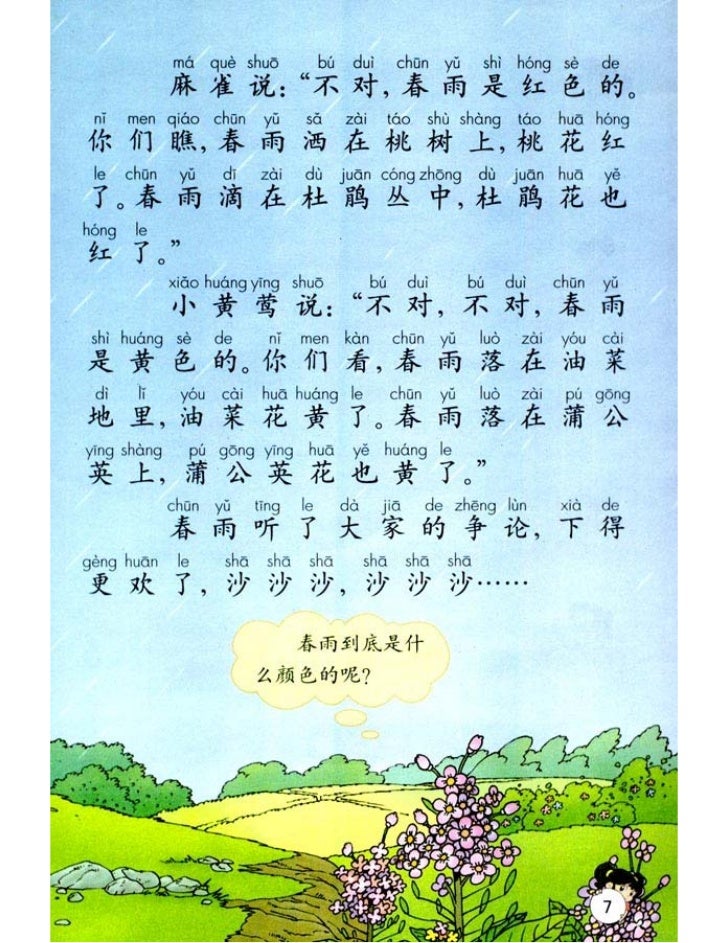 má què shuō bú duì chūn yǔ shì hóng sè de
麻雀说：“不对，春雨是红色的。
nǐ men qiáo chūn yǔ sǎ zài táo shù shàng táo huā hóng
你们瞧，春雨洒在桃树上，桃花红
le chūn yǔ dī zài dù juān cóng zhōng dù juān huā yě
了。春雨滴在杜鹃丛中，杜鹃花也
hóng le
红了。”
xiǎo huáng yīng shuō bú duì bú duì chūn yǔ
小黄莺说：“不对，不对，春雨
shì huáng sè de nǐ men kàn chūn yǔ luò zài yóu cài
是黄色的。你们看，春雨落在油菜
dì lǐ yóu cài huā huáng le chūn yǔ luò zài pú gōng
地里，油菜花黄了。春雨落在蒲公
yīng shàng pú gōng yīng huā yě huáng le
英上，蒲公英花也黄了。”
chūn yǔ tīng le dà jiā de zhēng lùn xià de
春雨听了大家的争论，下得
gèng huān le shā shā shā shā shā shā
更欢了，沙沙沙，沙沙沙……
春雨到底是什
么颜色的呢？
7